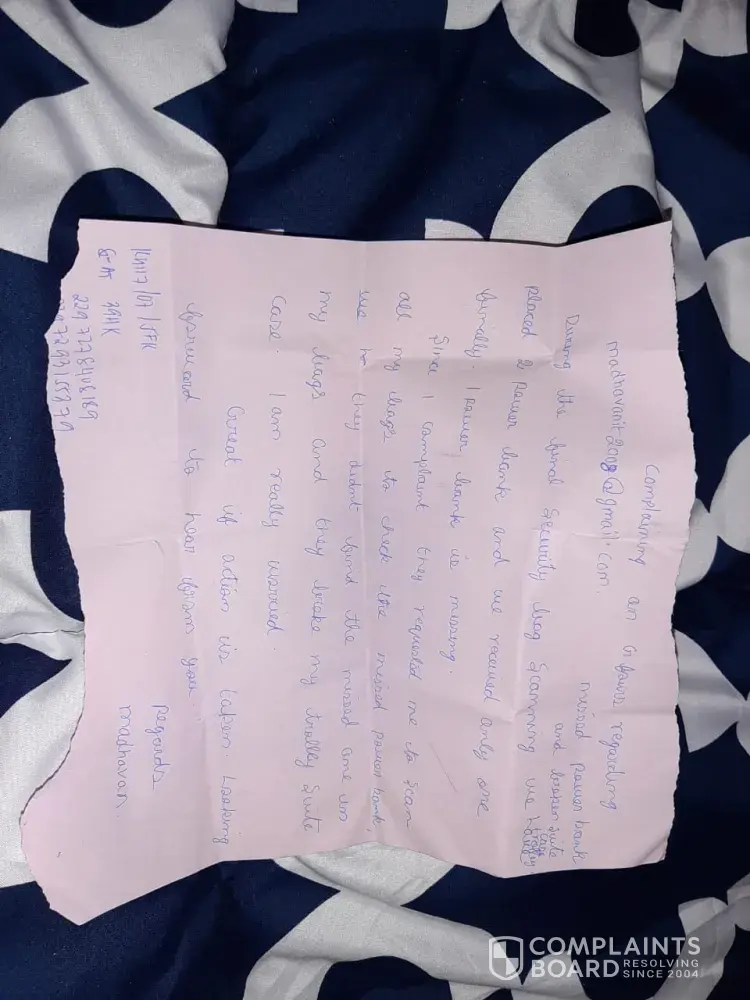 Complaining on Gfaws regarding
madhavanit2008@gmail.com.
missed Power bank
and broken suite
case
trolley
During the find Security bag Scanning we have
placed 2 Power bank and we received only one
finally. 1 Power bank is missing.
Since I complaint they requested me to scan
all my bags to check the missed power bank,
they didnt find the missed one in
my bags and they broke my trolley Suite
Case. I am really worried.
Great if action is taken. Looking
forward to hear from you.
Regards
madhavan.
39UK
COMPLAINTS
BOARD RESOLVING
SINCE 2004